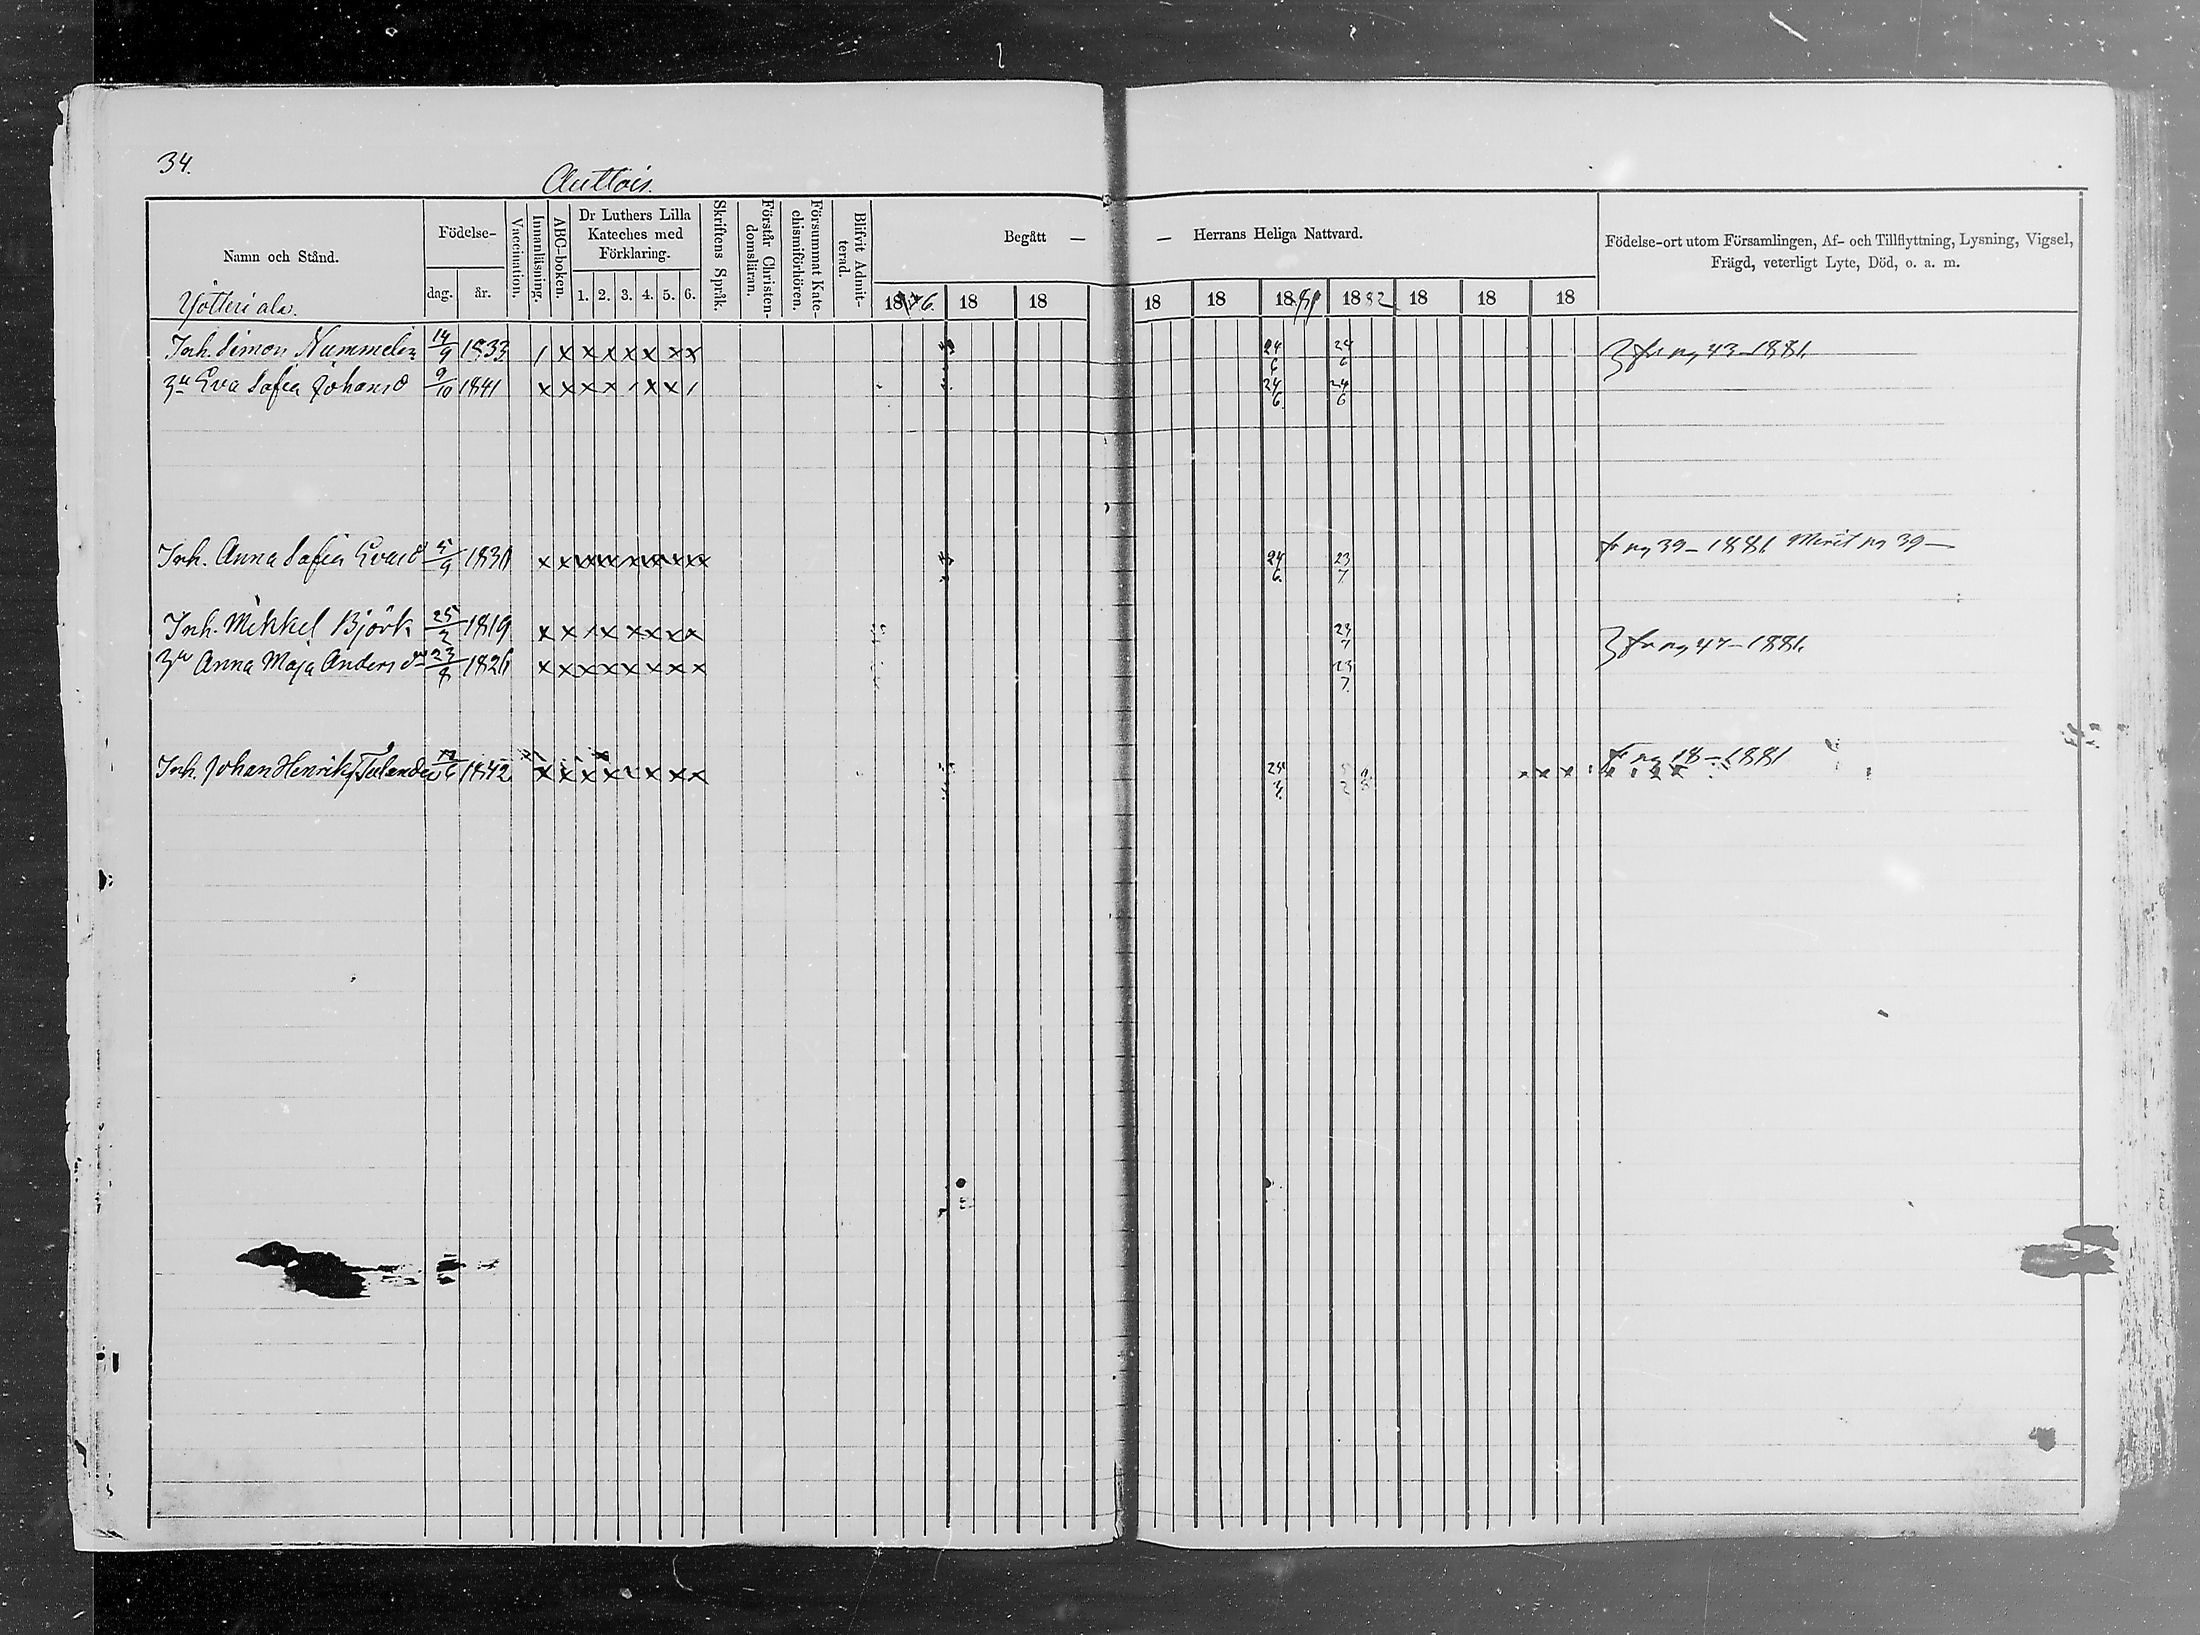 34.
Auttois.
Namn och Stånd.
Födelse-
dag.
år.
Vaccination.
Innanläsning.
ABC-boken.
Dr Luthers Lilla
Kateches med
Förklaring.
1. 2. 3. 4. 5. 6.
Skriftens Språk.
Förstår Christen-
domsläran.
Försummat Kate-
chismiförhören.
Blifvit Admit-
terad.
Begått — — Herrans Heliga Nattvard.
1876. 18 18 18 18 1881 1882 18 18 18
Födelse-ort utom Församlingen, Af- och Tillflyttning, Lysning, Vigsel,
Frägd, veterligt Lyte, Död, o. a. m.
Inh. Simon Nummelin 14/9 1833 / x x x x x x x 24/6 24/6 fr pg 43–1881.
Eva Sofia Johansd 9/10 1841 x x x x / x x / 24/6 24/6
Inh. Anna Sofia 5/9 24/6 23/7 fr pg 39–1881
Inh. Mikkel Björk 25/2 1819 x x / x x x x x 23/7 fr pg 47–1881.
Anna Maja Andersdr 1826 x x x x x x x x 23/7
Inh. Johan Henriks 1842 x x x x x x x fr pg 18–1881